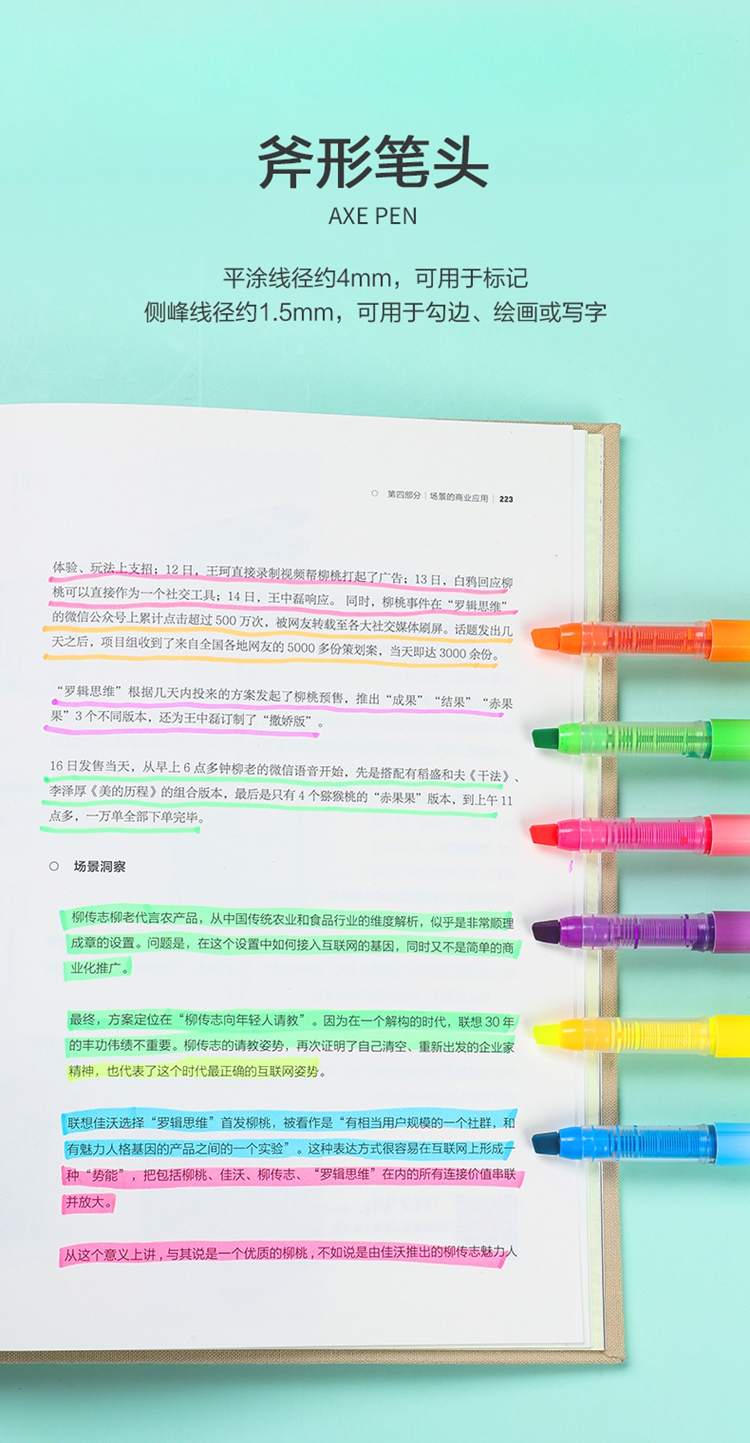 斧形笔头
AXE PEN
平涂线径约4mm，可用于标记
侧峰线径约1.5mm，可用于勾边、绘画或写字
第四部分｜场景的商业应用｜223
体验、玩法上支招；12日，王珂直接录制视频帮柳桃打起了广告；13日，白鸦回应柳
桃可以直接作为一个社交工具；14日，王中磊响应。 同时，柳桃事件在“罗辑思维”
的微信公众号上累计点击超过500万次，被网友转载至各大社交媒体刷屏。话题发出几
天之后，项目组收到了来自全国各地网友的5000多份策划案，当天即达3000余份。
“罗辑思维”根据几天内投来的方案发起了柳桃预售，推出“成果”“结果”“赤果
果”3个不同版本，还为王中磊订制了“撒娇版”。
16日发售当天，从早上6点多钟柳老的微信语音开始，先是搭配有稻盛和夫《干法》、
李泽厚《美的历程》的组合版本，最后是只有4个猕猴桃的“赤果果”版本，到上午11
点多，一万单全部下单完毕。
场景洞察
柳传志柳老代言农产品，从中国传统农业和食品行业的维度解析，似乎是非常顺理
成章的设置。问题是，在这个设置中如何接入互联网的基因，同时又不是简单的商
业化推广。
最终，方案定位在“柳传志向年轻人请教”。因为在一个解构的时代，联想30年
的丰功伟绩不重要。柳传志的请教姿势，再次证明了自己清空、重新出发的企业家
精神，也代表了这个时代最正确的互联网姿势。
联想佳沃选择“罗辑思维”首发柳桃，被看作是“有相当用户规模的一个社群，和
有魅力人格基因的产品之间的一个实验”。这种表达方式很容易在互联网上形成一
种“势能”，把包括柳桃、佳沃、柳传志、“罗辑思维”在内的所有连接价值串联
并放大。
从这个意义上讲，与其说是一个优质的柳桃，不如说是由佳沃推出的柳传志魅力人